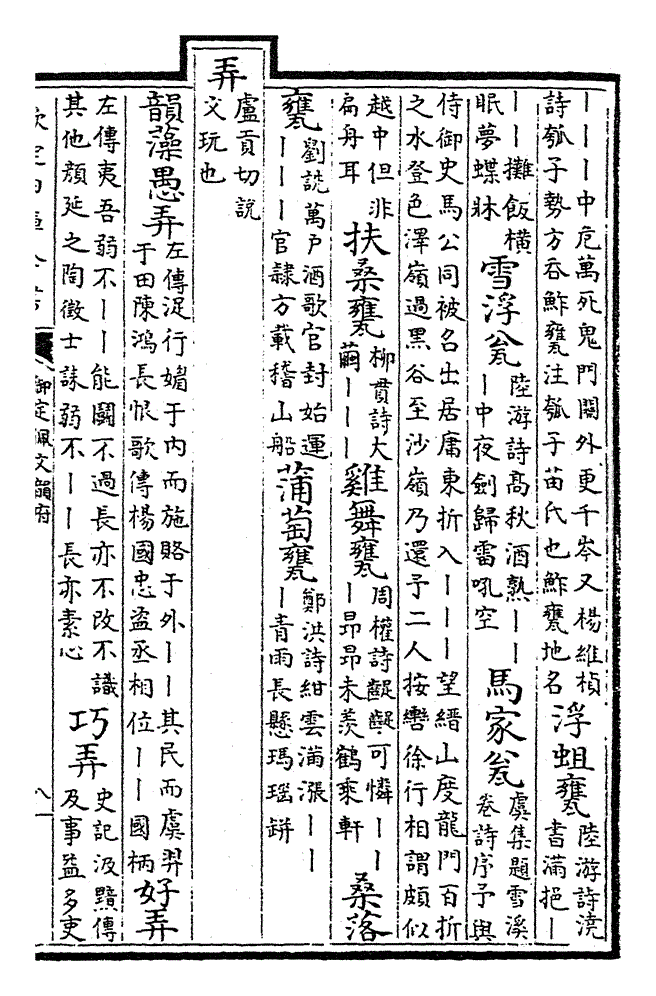 丨丨丨中危萬死鬼門關外更千岑又楊維楨
詩瓠子勢方吞鮓甕注瓠子苗氏也鮓甕地名
浮蛆甕
陸游詩澆
書滿挹丨
丨丨攤飯橫
眠夢蝶牀
雪浮瓮
陸游詩高秋酒熟丨丨
丨中夜劍歸雷吼空
馬家瓮
虞集題雪溪
卷詩序予與
侍御史馬公同被召出居庸東折入丨丨丨望縉山度龍門百折
之水登色澤嶺過黑谷至沙嶺乃還予二人按轡徐行相謂頗似
越中但非
扁舟耳
扶桑甕
柳貫詩大
繭丨丨丨
雞舞甕
周權詩齪齪可憐丨丨
丨昂昂未羨鶴乘軒
桑落
甕
劉詵萬戶酒歌官封始運
丨丨丨官隷方載稽山船
蒲萄甕
鄭洪詩紺雲滿漲丨丨
丨青雨長懸瑪瑙缾
弄
盧貢切說
文玩也
韻藻愚弄
左傳浞行媚于內而施賂于外丨丨其民而虞羿
于田陳鴻長恨歌傳楊國忠盜丞相位丨丨國柄
好弄
左傳夷吾弱不丨丨能鬭不過長亦不改不識
其他顏延之陶徵士誄弱不丨丨長亦素心
巧弄
史記汲黯傳
及事益多吏
欽定四庫全書
御定佩文韻府